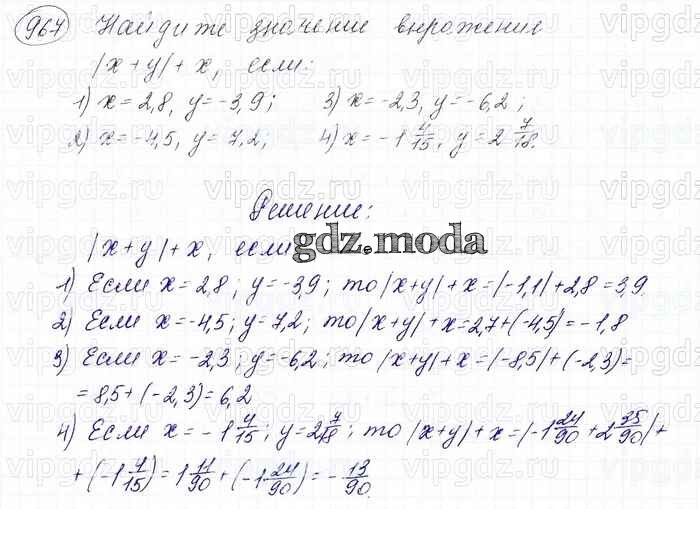 967 Найдите значение выражения
|x + y| + x, если:
1) x = 2,8, y = -3,9; 3) x = -2,3, y = -6,2;
2) x = -4,5, y = 7,2; 4) x = -1 4/15, y = 2 7/18.
Решение:
|x + y| + x, если
gdz.moda
1) Если x = 2,8; y = -3,9; то |x+y| + x = |-1,1| + 2,8 = 3,9.
2) Если x = -4,5; y = 7,2; то |x+y| + x = 2,7 + (-4,5) = -1,8
3) Если x = -2,3; y = -6,2; то |x+y| + x = |-8,5| + (-2,3) =
= 8,5 + (-2,3) = 6,2
4) Если x = -1 4/15; y = 2 7/18; то |x+y| + x = |-1 24/90 + 2 35/90| +
+ (-1 4/15) = 1 11/90 + (-1 24/90) = - 13/90.
vipgdz.ru